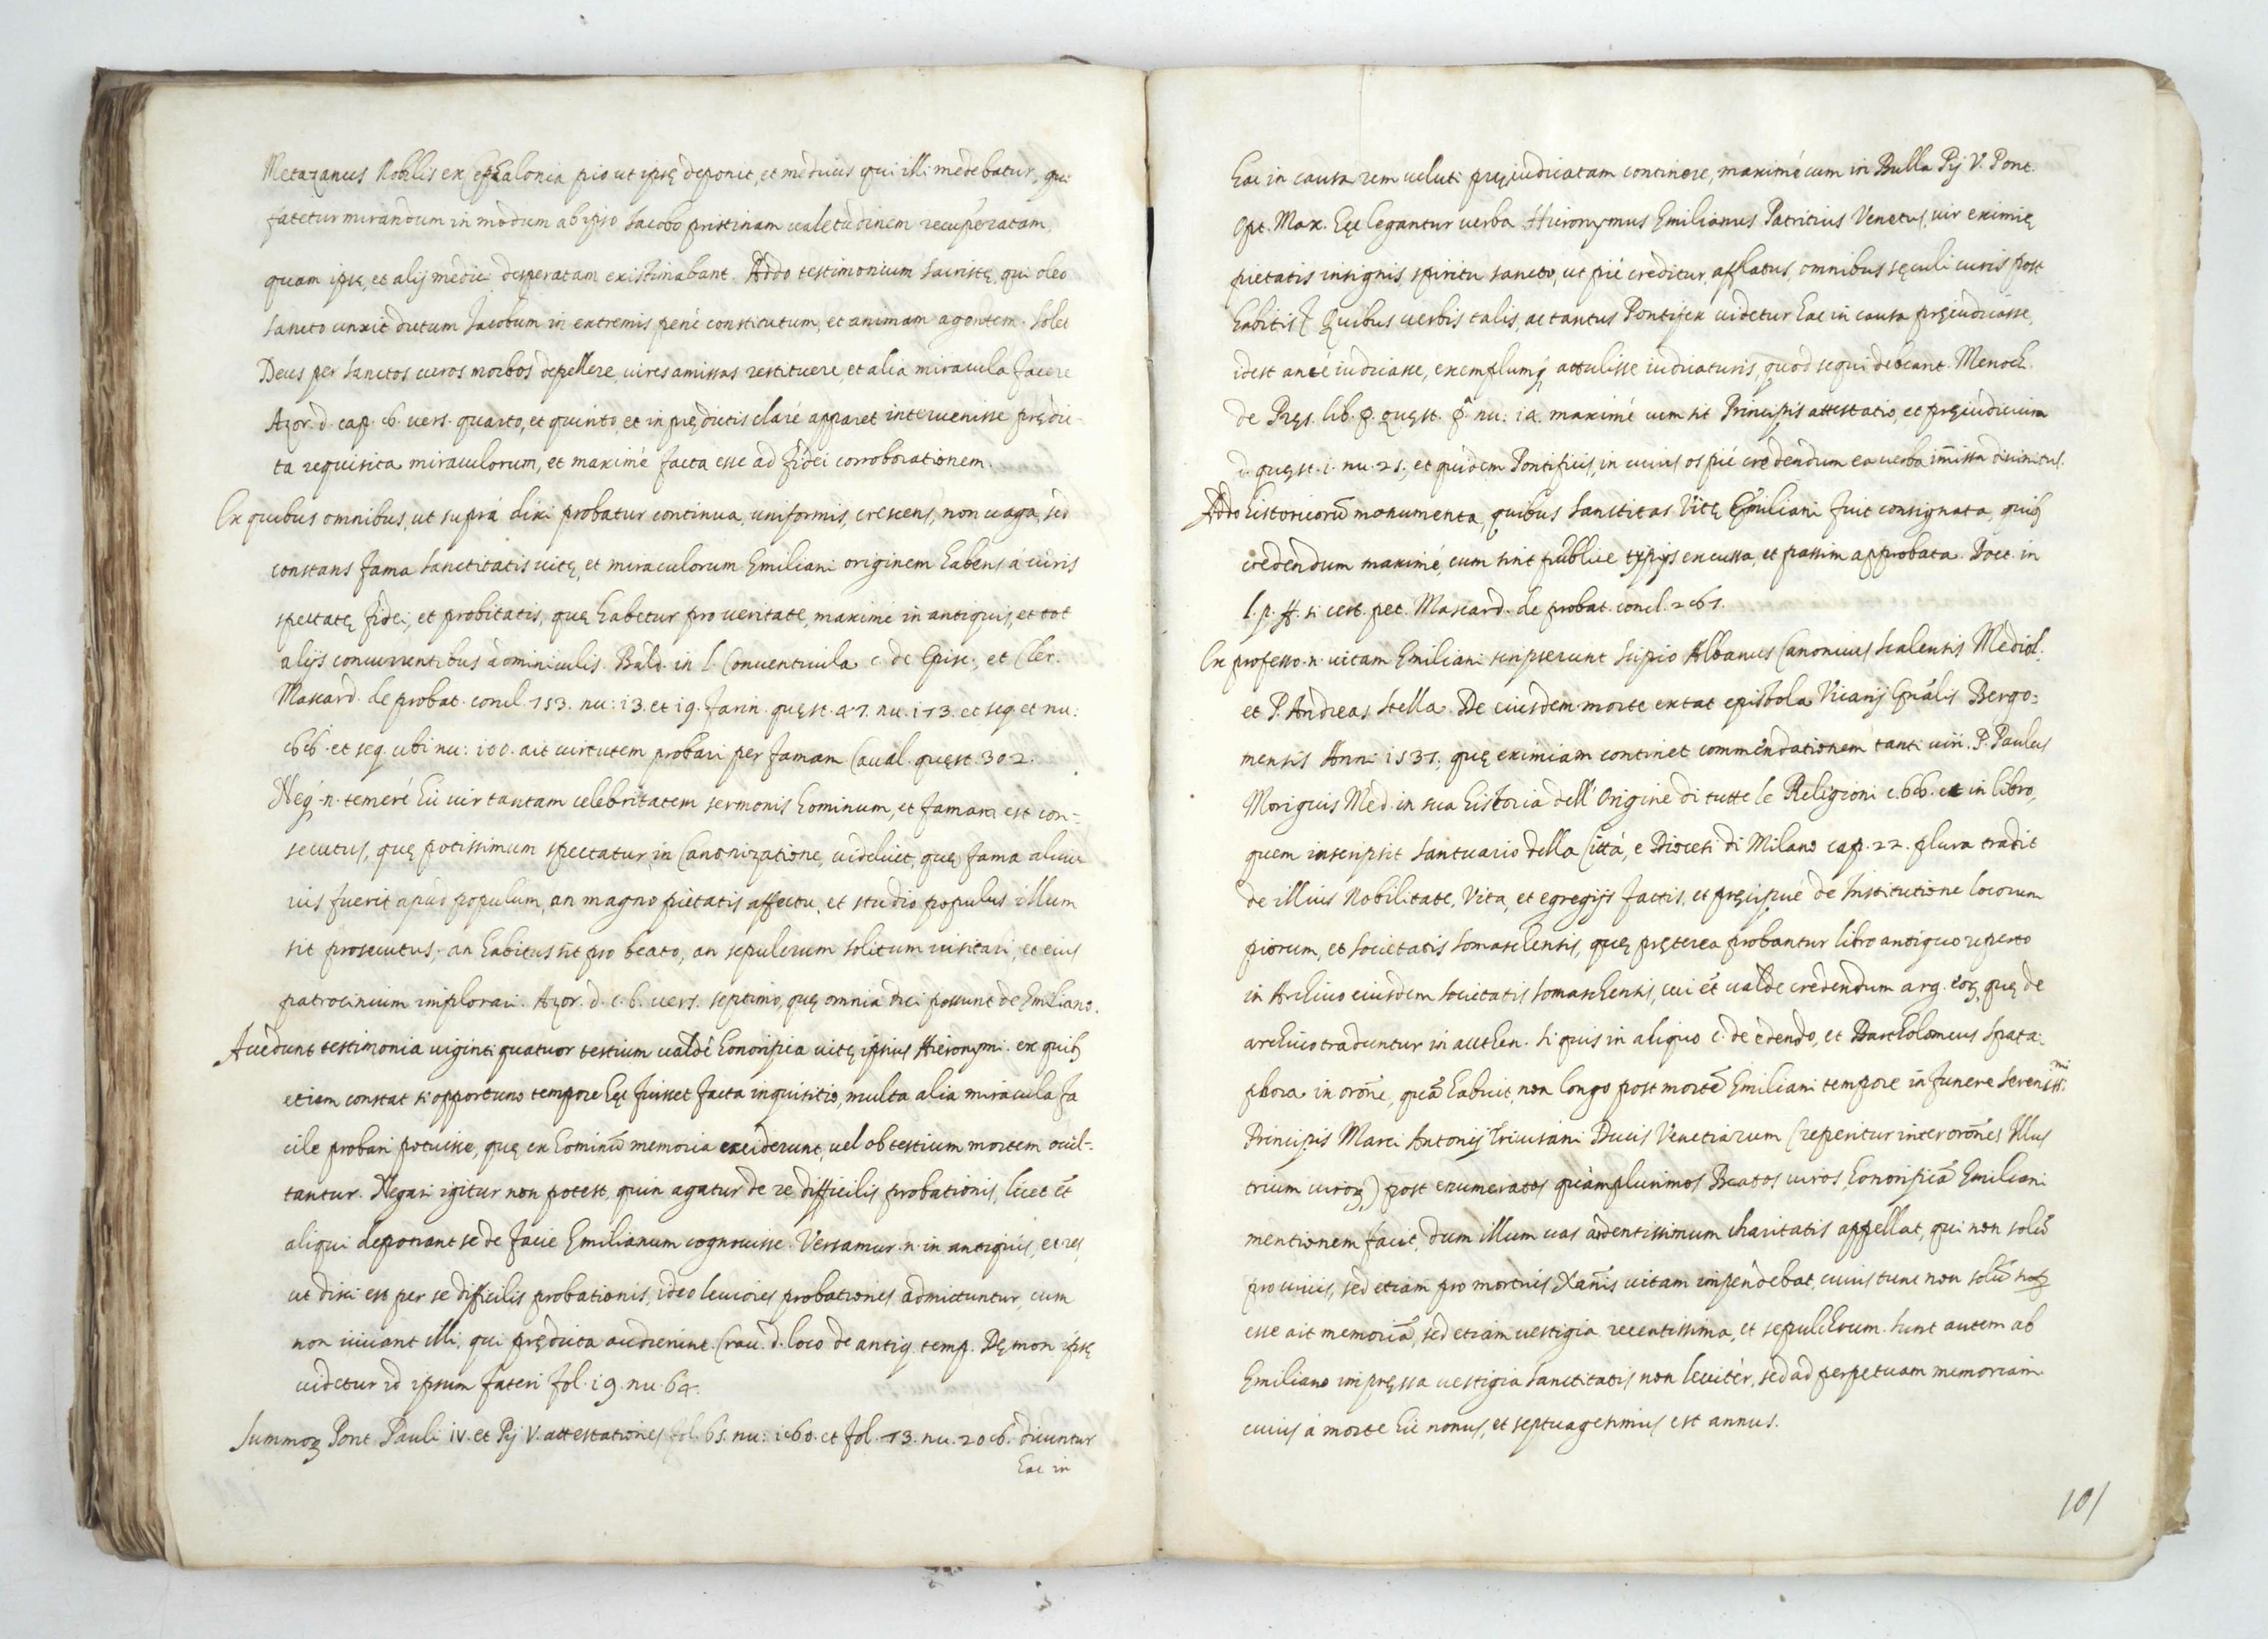 Metaxanus Nobilis ex Cephalonia pio ut ipse deponit, et medicus qui illi medebatur, qui
fatetur mirandum in modum ab ipso Iacobo pristinam valetudinem recuperatam,
quam ipse, et alij medici desperatam existimabant. Addo testimonium Sacristę, qui oleo
sancto unxit dictum Iacobum in extremis penè constitutum, et animam agentem. Solet
Deus per Sanctos viros morbos depellere, vires amissas restituere, et alia miracula facere
Azor. d. cap. 6. vers. quarto, et quinto, et in prędictis clarè apparet intervenisse prędic-
ta requisita miraculorum, et maximè facta esse ad fidei corroborationem.
Ex quibus omnibus, ut suprà dixi probatur continua, uniformis, crescens, non vaga, sed
constans fama sanctitatis vitę, et miraculorum Emiliani originem habens à viris
spectatę fidei, et probitatis, quę habetur pro veritate, maximè in antiquis, et tot
alijs concurrentibus adminiculis. Bald. in l. Conventicula c. de Episc. et Cler.
Mascard. de probat. concl. 753. nu: 13. et 19. Farin. quęst. 47. nu. 173. et seq. et nu:
66. et seq. ubi nu: 100. ait virtutem probari per famam Caval. quęst. 302.
Neq. n. temerè hic vir tantam celebritatem sermonis hominum, et famam est con-
secutus, quę potissimum spectatur in Canonizatione, videlicet, quę fama alicu
ius fuerit apud populum, an magno pietatis affectu, et studio populus illum
sit prosecutus, an habitus sit pro beato, an sepulcrum solitum visitari, et eius
patrocinium implorari. Azor. d. c. 6. vers. septimo, quę omnia dici possunt de Emiliano.
Accedunt testimonia viginti quatuor testium valdè honorifica vitę ipsius Hieronymi. ex quib.
etiam constat si opportuno tempore hęc fuisset facta inquisitio, multa alia miracula fa
cile probari potuisse, quę ex hominū memoria exciderunt, vel ob testium mortem occul-
tantur. Negari igitur non potest, quin agatur de re difficilis probationis, licet ēt
aliqui deponant se de facie Emilianum cognovisse. Versamur. n. in antiquis, et res,
ut dixi est per se difficilis probationis, ideo leviores probationes admittuntur, cum
non vivant illi, qui prędicta audierint. Crav. d. loco de antiq. temp. Dęmon ipse
videtur id ipsum fateri fol. 19. nu. 64.
Summoꝝ Pont. Pauli iv. et Pij V. attestationes fol. 65. nu: 160. et fol. 73. nu. 206. dicuntur
hac in
hac in causa rem veluti pręiudicatam continere, maximè cum in Bulla Pij V. Pont.
Opt. Max. hęc legantur verba Hieronymus Emilianus Patritius Venetus, vir eximię
pietatis insignis, spiritu sancto, ut piè creditur, afflatus, omnibus sęculi curis post
habitis Quibus verbis talis, ac tantus Pontifex videtur hac in causa pręiudicasse,
idest antè iudicasse, exemplumq. attulisse iudicaturis, quod sequi debeant. Menoch.
de Pręs. lib. p. quęst. pª. nu: 14. maximè cum sit Principis attestatio, et pręiudicium
d. quęst. 1. nu. 21. et quidem Pontificis, in cuius os piè credendum ea verba im̄issa divinitus.
Addo historicorū monumenta, quibus sanctitas Vitę Emiliani fuit consignata, quib.
credendum maximè, cum sint publicè typijs excussa, et passim approbata. Doct. in
l. p. ff. si cert. pet. Mascard. de probat. concl. 267.
Ex professo. n. vitam Emiliani scripserunt Scipio Albanus Canonicus Scalensis Mediol.
et P. Andreas Stella. De eiusdem morte extat epistola Vicarij Gn̄alis Bergo-
mensis Anni 1537, quę eximiam continet commendationem tanti viri. P. Paulus
Morigius Med. in sua historia dell'Origine di tutte le Religioni c. 66. et in libro,
quem inscripsit Santuario della Città, e Diocesi di Milano cap. 22. plura tradit
de illius Nobilitate, Vita, et egregijs factis, et pręcipuè de Institutione locorum
piorum, et Societatis Somaschensis, quę pręterea probantur libro antiquo reperto
in Archivo eiusdem Societatis Somaschensis, cui ēt valde credendum arg. eoꝝ, quę de
archivo traduntur in authen. si quis in aliquo c. de edendo, et Bartholomeus Spata-
phora in orōne, quā habuit, non longo post mortē Emiliani tempore in funere Sereniss.mi
Principis Marci Antonij Trivisani Ducis Venetiarum (reperitur inter orōnes Illus
trium viroꝝ) post enumeratos quàmplurimos Beatos viros, honorificā Emiliani
mentionem facit, dum illum vas ardentissimum charitatis appellat, qui non solū
pro vivis, sed etiam pro mortuis Xan̄is vitam impendebat, cuius tunc non solū
esse ait memoriā, sed etiam vestigia recentissima, et sepulchrum. Sunt autem ab
Emiliano impressa vestigia sanctitatis non levitèr, sed ad perpetuam memoriam
cuius à morte hic nonus, et septuagesimus est annus.
101